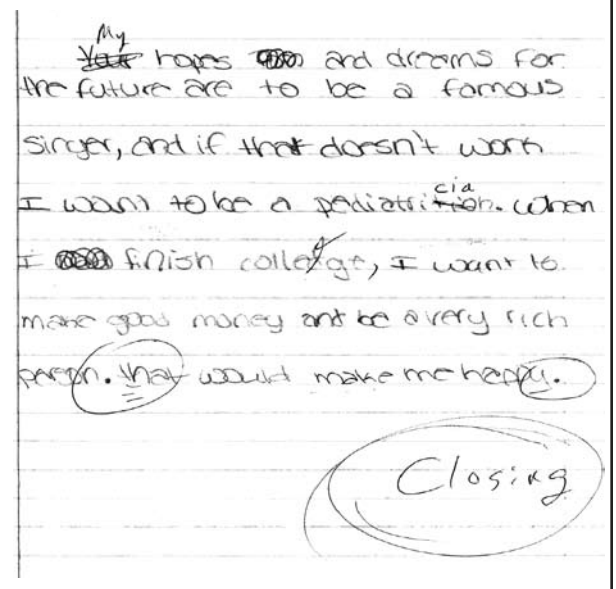 My
hopes and dreams for
the future are to be a famous
singer, and if that doesn't work
I want to be a pediatrician. When
I finish college, I want to
make good money and be a very rich
person. that would make me happy.
Closing